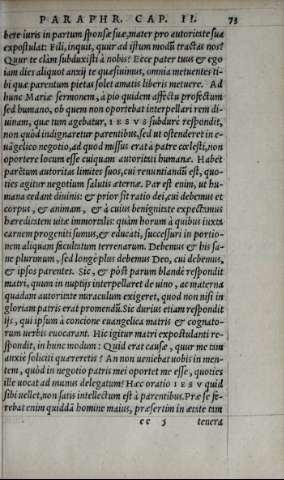 PARAPHR. CAP. II. 73
bere iuris in partum sponsæ suæ, mater pro autoritate sua
expostulat: Fili, inquit, quur ad istum modū tractas nos?
Quur te clàm subduxisti à nobis? Ecce pater tuus & ego
iam dies aliquot anxij te quæsiuimus, omnia metuentes ti-
bi quæ parentum pietas solet amatis liberis metuere. Ad
hunc Mariæ sermonem, à pio quidem affectu profectum
sed humano, ob quem non oportebat interpellari rem di-
uinam, quæ tum agebatur, IESVS subdurè respondit,
non quòd indignaretur parentibus, sed ut ostenderet in e-
uāgelico negotio, ad quod missus erat à patre cœlesti, non
oportere locum esse cuiquam autoritati humanæ. Habēt
parētum autoritas limites suos, cui renuntiandū est, quo-
ties agitur negotium salutis æternæ. Par est enim, ut hu-
mana cedant diuinis: & prior sit ratio dei, cui debemus et
corpus, & animam, & à cuius benignitate expectamus
hæreditatem uitæ immortalis: quàm horum à quibus iuxta
carnem progeniti sumus, & educati, successuri in portio-
nem aliquam facultatum terrenarum. Debemus & his sa-
ne plurimum, sed longè plus debemus Deo, cui debemus,
& ipsos parentes. Sic, & pòst parum blandè respondit
matri, quum in nuptijs interpellaret de uino, ac materna
quadam autoritate miraculum exigeret, quod non nisi in
gloriam patris erat promendū. Sic durius etiam respondit
ijs, qui ipsum à concione euangelica matris & cognato-
rum uerbis euocarant. Hic igitur matri expostulanti re-
spondit, in hunc modum: Quid erat causæ, quur me tam
anxiè soliciti quæreretis? An non ueniebat uobis in men-
tem, quòd in negotio patris mei oportet me esse, quoties
ille uocat ad munus delegatum? Hæc oratio IESV quid
sibi uellet, non satis intellectum est à parentibus. Præ se fe-
rebat enim quiddā homine maius, præsertim in ætate tam
cc 5 tenera